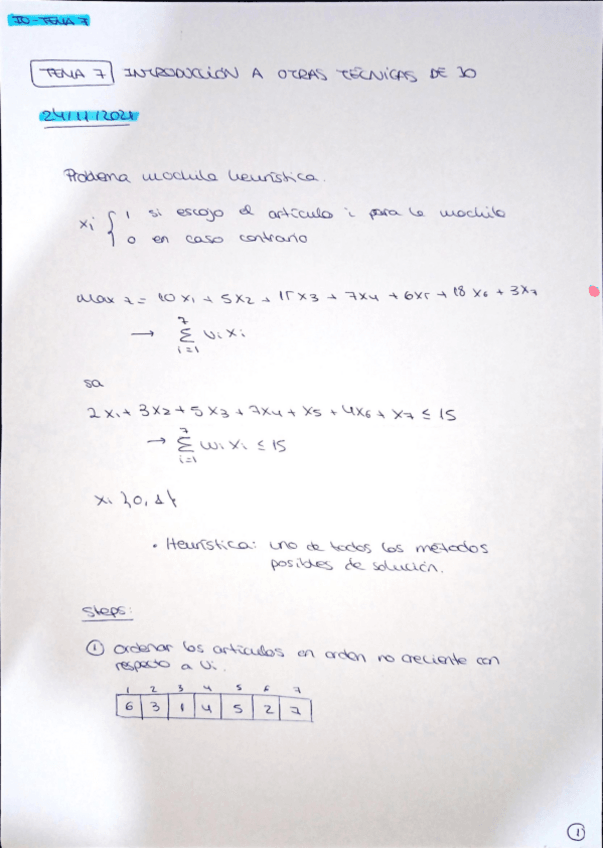 IO - TEMA 7
TEMA 7 INTRODUCCIÓN A OTRAS TÉCNICAS DE IO
24/11/2021
Problema mochila heurística.
xi { 1 si escojo el artículo i para la mochila
0 en caso contrario
Max z = 10x1 + 5x2 + 15x3 + 7x4 + 6x5 + 18x6 + 3x7
→ 7 Σ i=1 vi xi
sa
2x1 + 3x2 + 5x3 + 7x4 + x5 + 4x6 + x7 ≤ 15
→ 7 Σ i=1 wi xi ≤ 15
xi }0,1{
• Heurística: uno de todos los métodos
posibles de solución.
Steps:
① ordenar los artículos en orden no creciente con
respecto a vi.
1 2 3 4 5 6 7
6 3 1 4 5 2 7
1